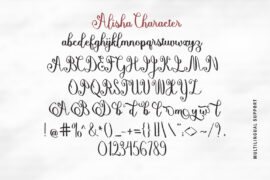 Alisha Character
abcdefghijklmnopqrstuvwxyz
ABCDEFGHIJKLMN
OPQRSTUVWXYZ
!@#%^&*()_-+={}
:;<>~/?.
0123456789
MULTILINGUAL SUPPORT